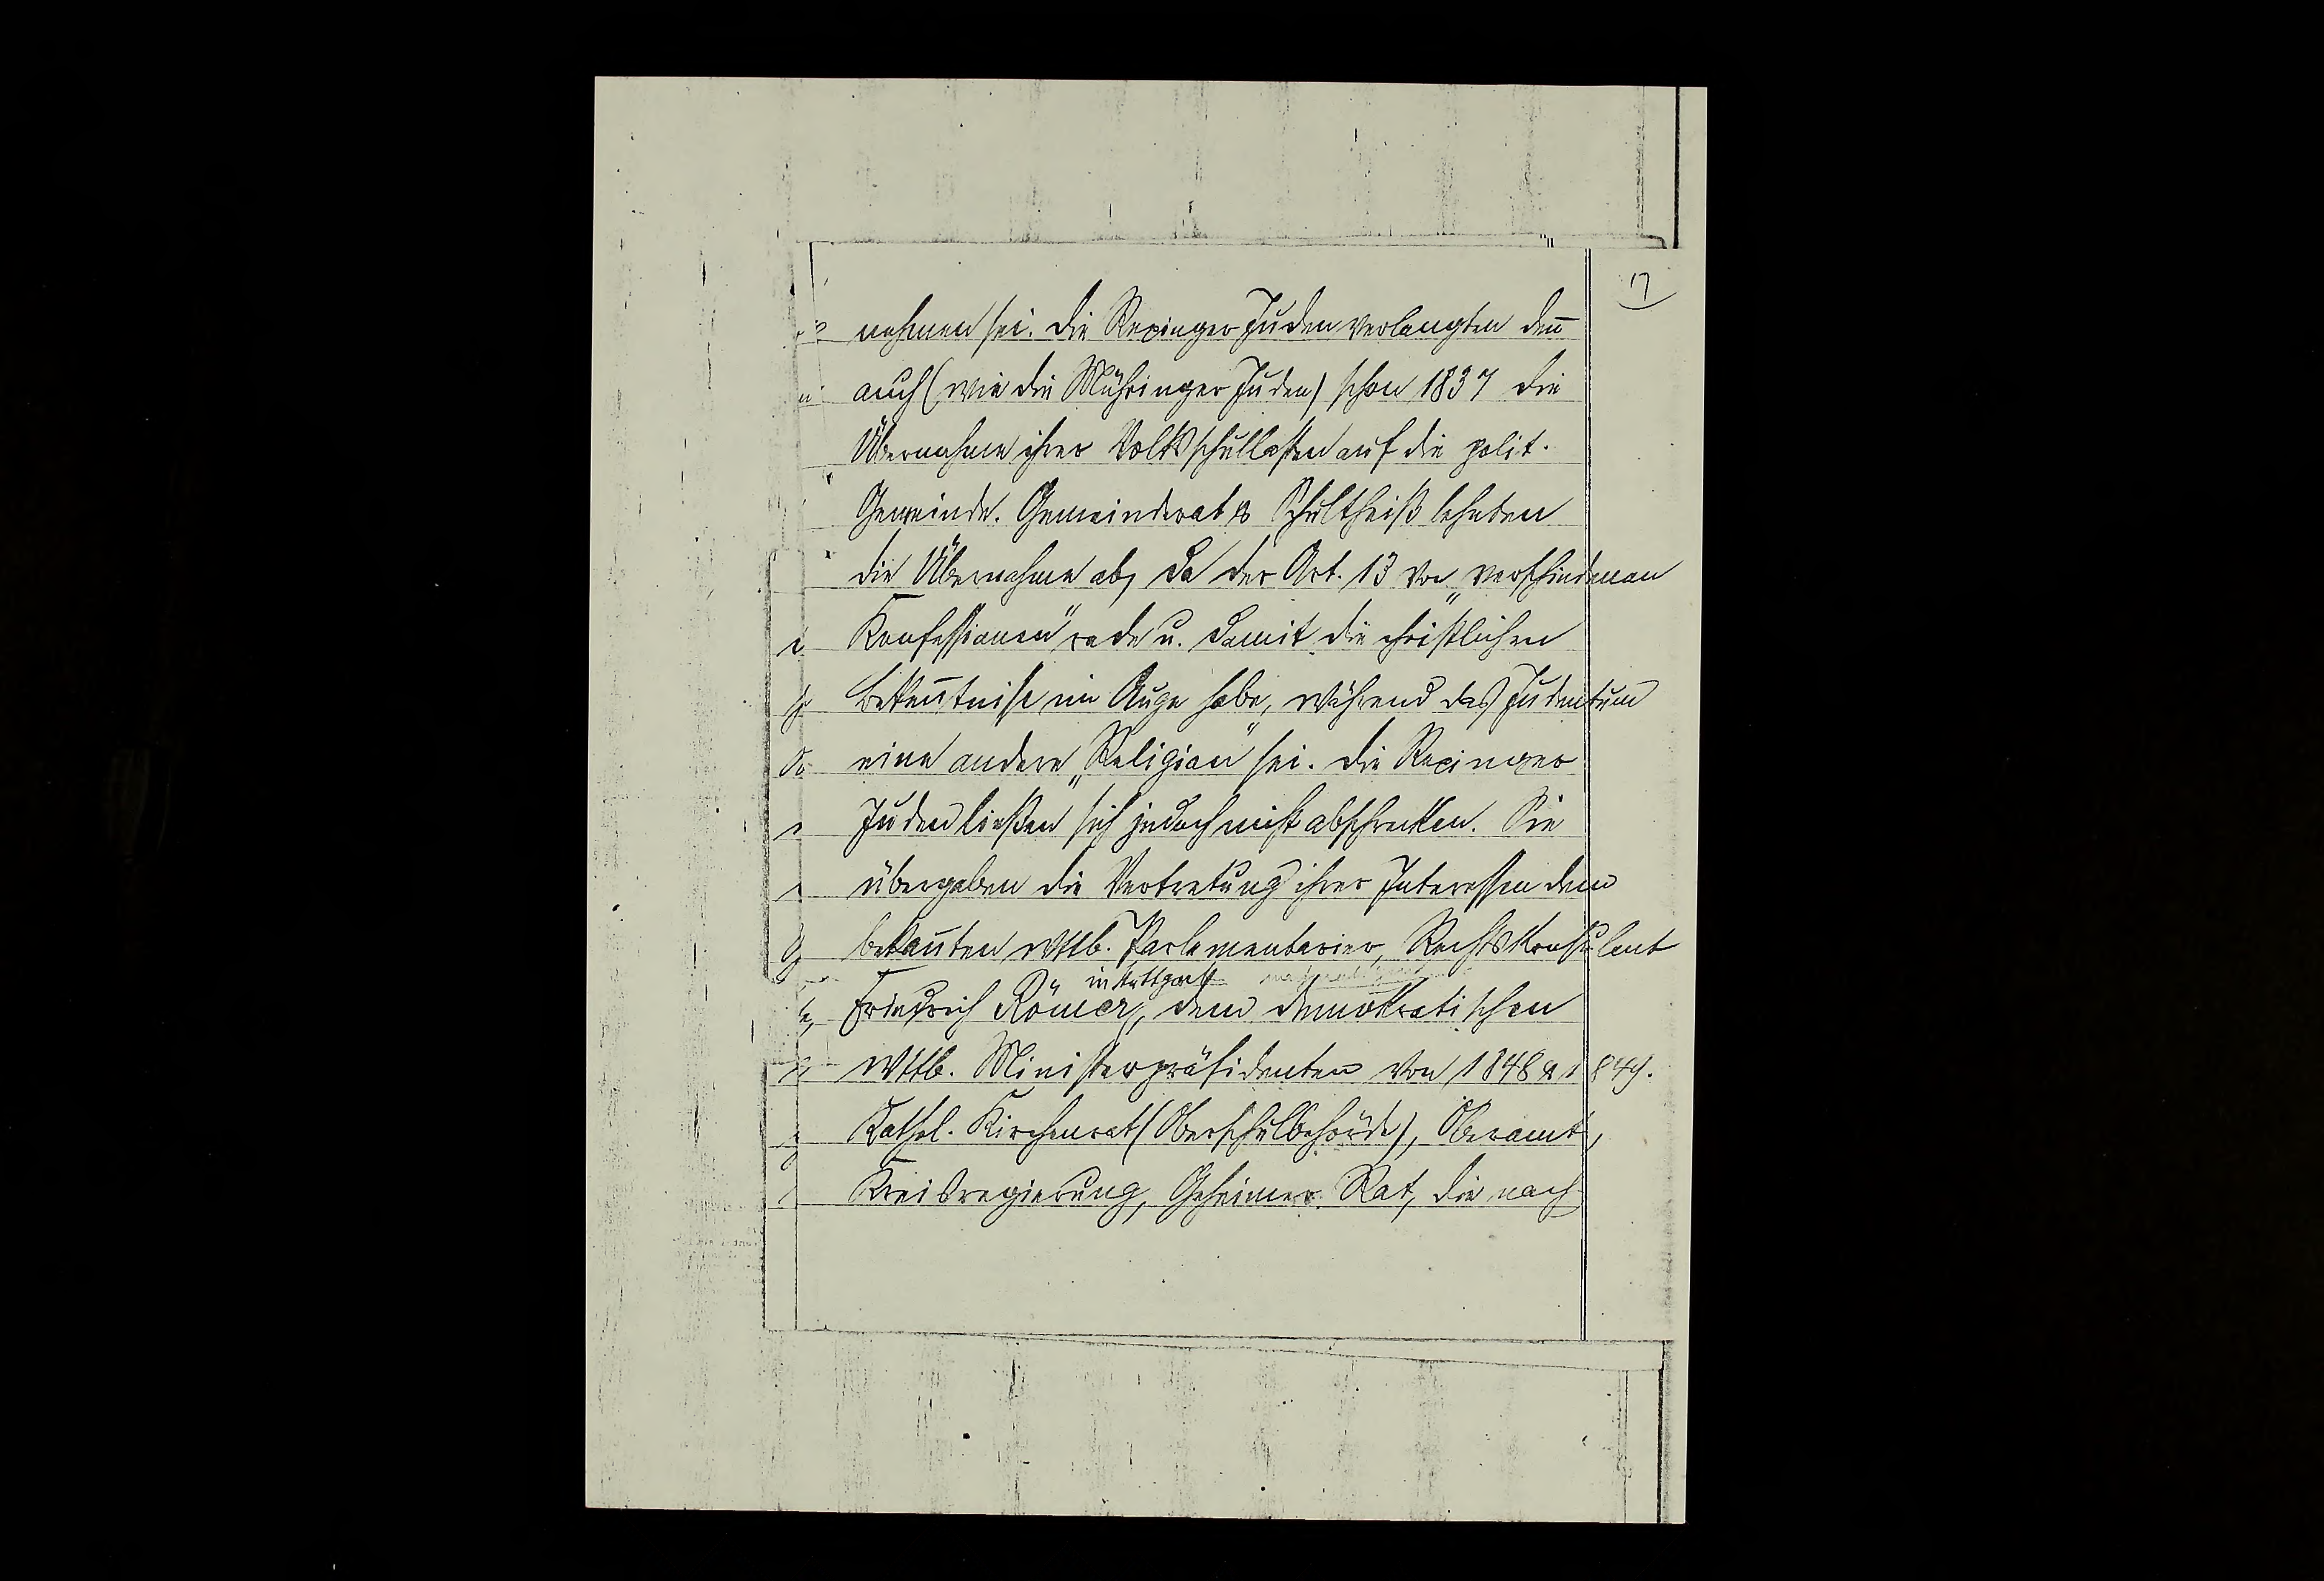 17
nehmen sei. Die Rexinger Juden verlangten den̄
auch (wie die Mühringer Juden) schon 1837 die
Übernahme ihrer Volksschullasten auf die polit.
Gemeinde. Gemeinderat & Schultheiß lehnten
die Übernahme ab, da der Art. 13 von „verschiedenen
Konfessionen" rede u. damit die christlichen
Beken̄tnisse im Auge habe, während das Judentum
eine andere „Religion" sei. Die Rexinger
Juden ließen sich jedoch nicht abschrecken. Sie
übergaben die Vertretung ihrer Interessen dem
bekan̄ten wttb. Parlamentarier, Rechtskonsulent
in Stuttgart
Friedrich Römer, dem demokratischen
wttb. Ministerpräsidenten von 1848 & 1849.
Kathol. Kirchenrat (Oberschulbehörde), Oberamt,
Kreisregierung, Geheimer Rat, die nach